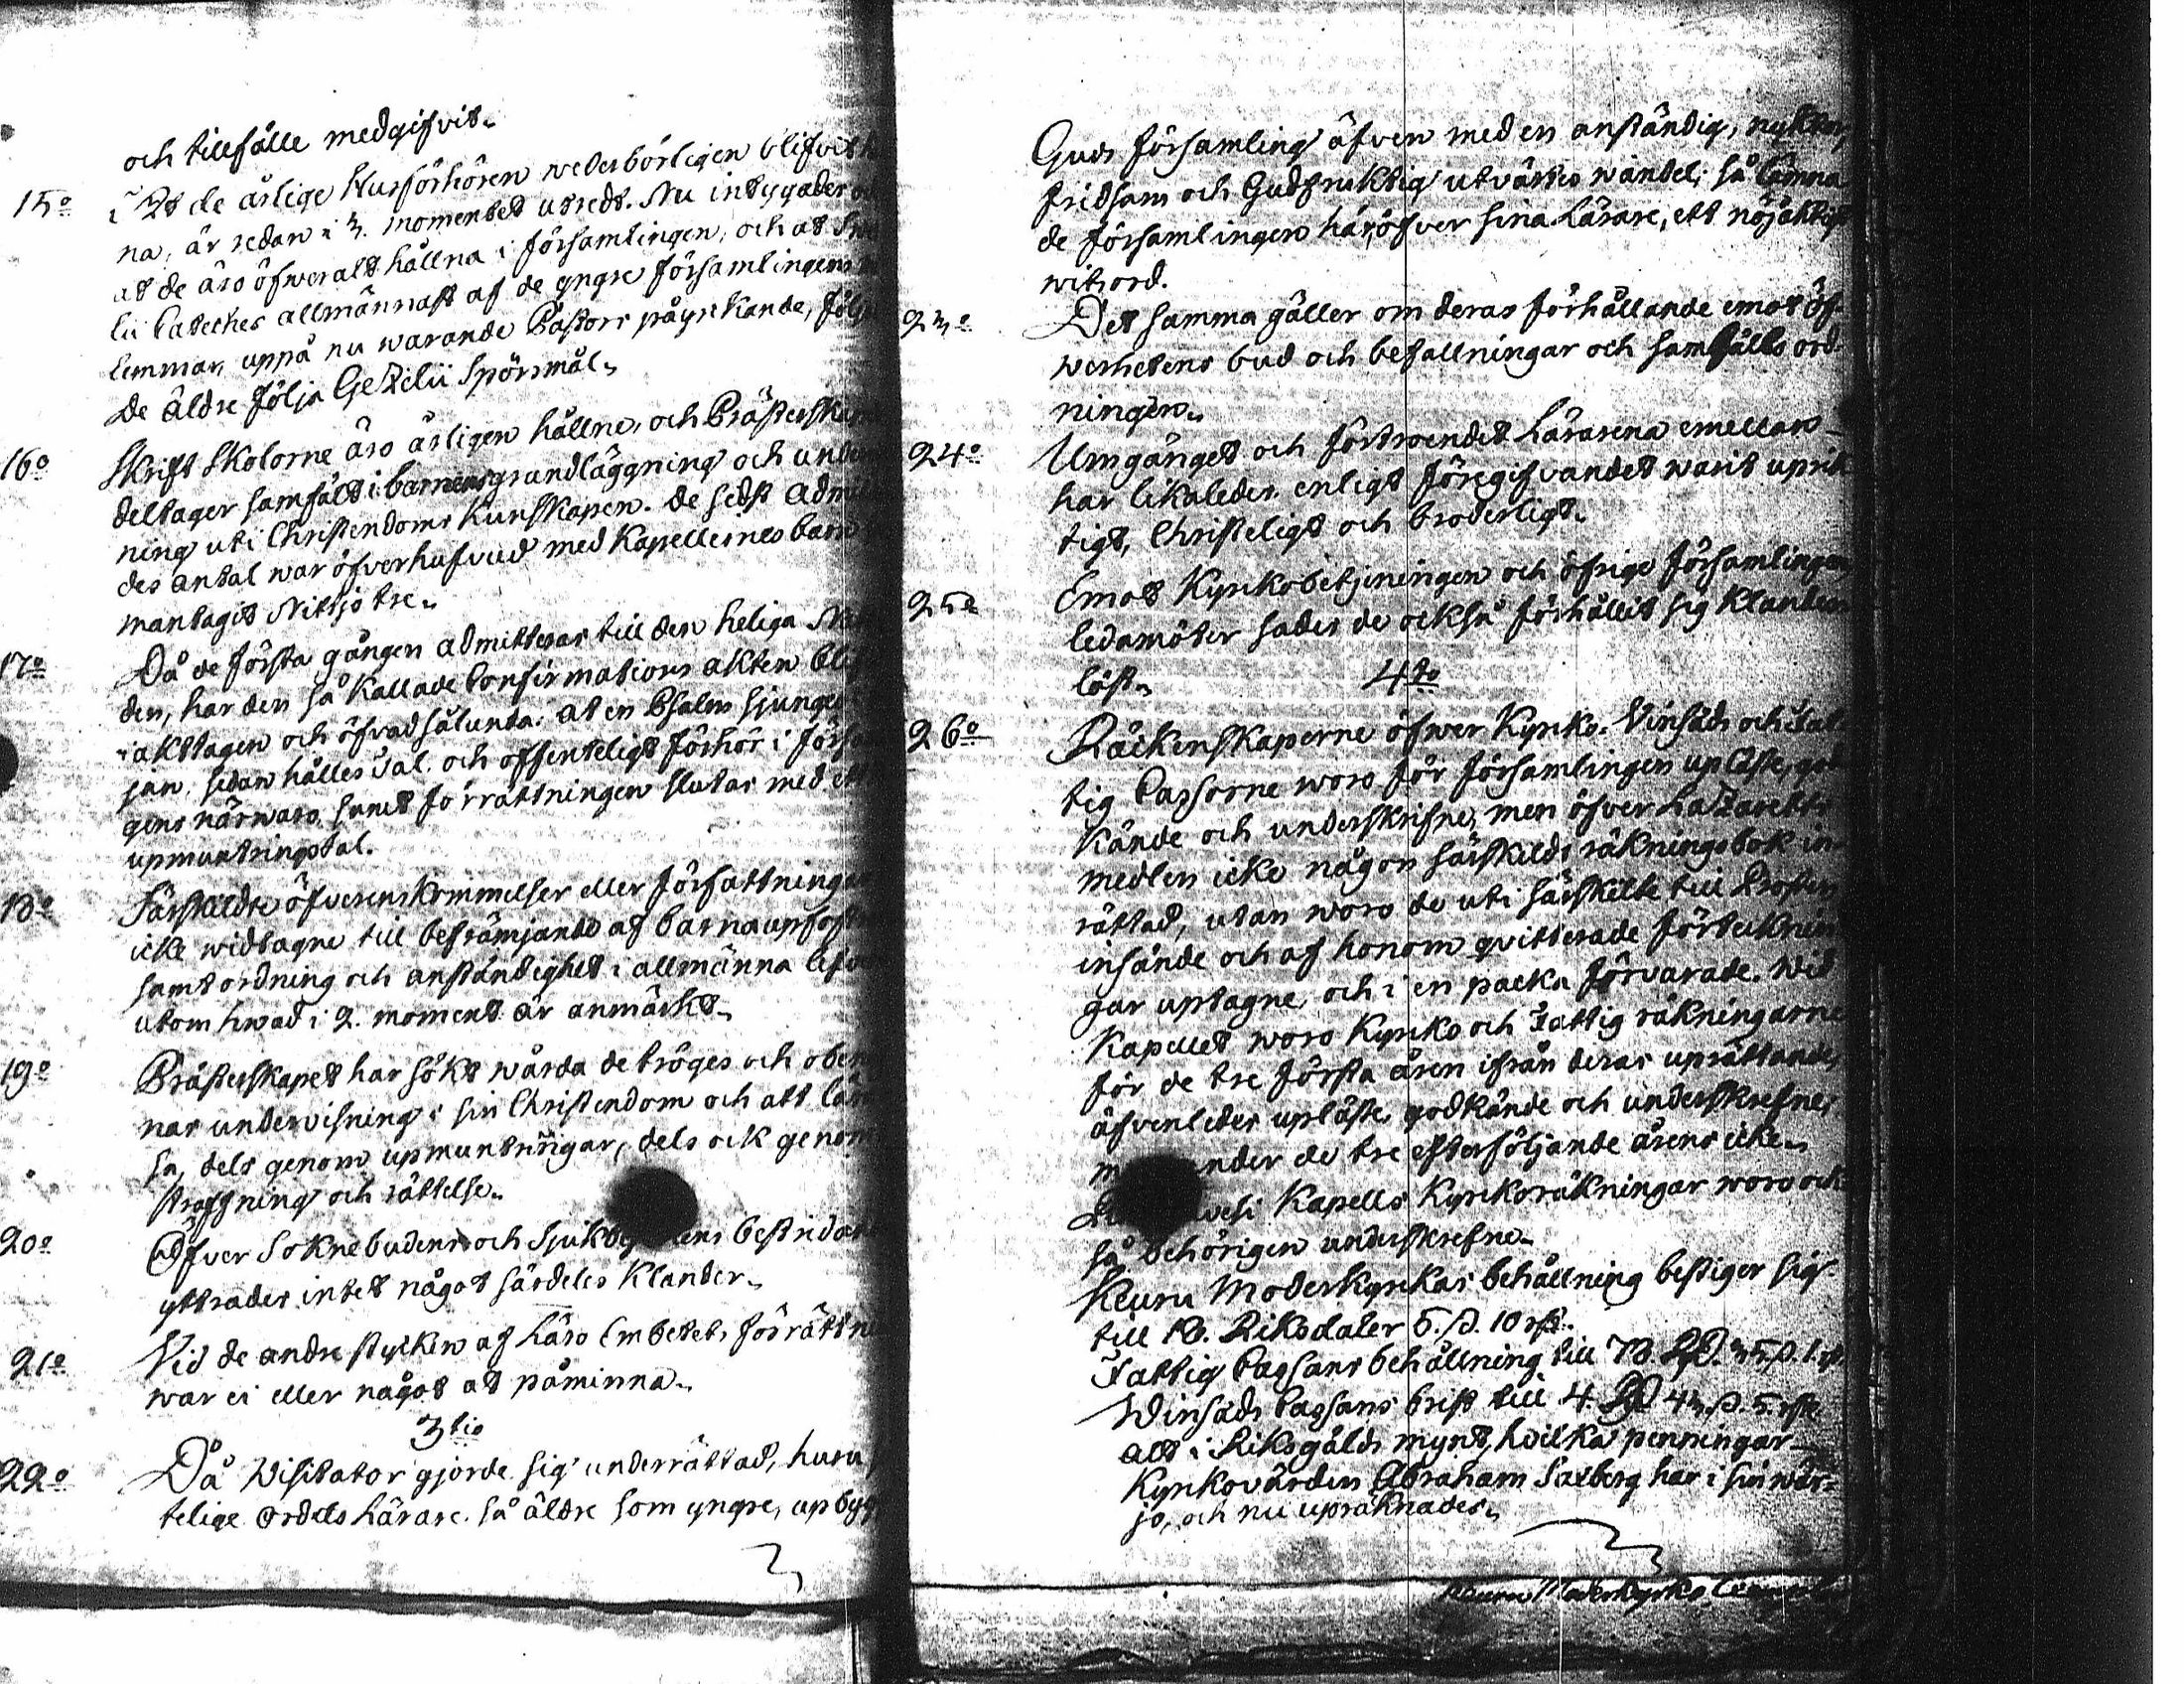 och tillfälle medgifvit.
15o At de årlige Husförhören wederbörligen blifvit
i
na, är redan i 3. momentet utredt. Nu intygades
at de äro öfweralt hållna i församlingen, och at
lii Cateches allmännast af de yngre församlingens
lemmar, uppå nu warande Pastors påyrkande,
de äldre följa Gezelii Spörsmål.
16o Skrift Skolorne äro årligen hållne, och
deltager samfält i barnens grundläggning och
ning uti Christendoms Kunskapen. De sidst
des antal war öfverhufvud med Kapellernes barn
mantagit Nittjo tre.
17o Då de första gången admitteras till den heliga
den, har den så kallade Confirmations akten
iakttagen och öfvad sålunda: at en Psalm sjunges
jan, sedan hålles Tal och offenteligt förhör i
gens närwaro, samt förrättningen slutas med ett
upmuntringstal.
18o Särskildte öfverenskommelser eller författningar
icke widtagne till befrämjande af barnaupfost
samt ordning och anständighet i allmänna
utom hwad i 2. moment är anmärkt.
19o Prästerskapet har sökt wårda de tröges och
nas undervisning i sin Christendom och att
sa, dels genom upmuntringar, dels ock genom
straffning och rättelse.
20o Öfver Soknebudens och bestridande
yttrades intet något särdeles Klander.
21o Vid de andre stycken af Läro Embetets
war ei eller något at påminna.
3tio
22o Då Visitator gjorde sig underrättad, huru
telige Ordets Lärare, så äldre som yngre,
Guds församling äfven med en anständig, nykter,
fridsam och Gudfruktig utvärtes wandel; så lämna
de församlingen häröfver sina Lärare, ett nöjaktigt
witsord.
23o Det samma gäller om deras förhållande emot öf-
werhetens bud och befallningar och samhälls ord-
ningen.
24o Umgänget och förtroendet Lärarena emellan
har likaledes enligt föregifvandet warit uprik
tigt, Christeligt och broderligt.
25o Emot Kyrkobetjeningen och öfrige församlingens
ledamöter sades de också förhållit sig klander
löst.
4to
26o Räckenskaperne öfwer Kyrko- Vinsäds och Fat-
tig Cassorne woro för församlingen upläste, god-
kände och underskrifne, men öfver Lazaretts
medlen icke någon särskilds räkningsbok in-
rättad, utan woro de uti särskilte till Prosten
insände och af honom qvitterade förteknin
gar uptagne, och i en packa förvarade. Wid
Kapellet woro Kyrko och Fattig räkningarne
för de tre första åren ifrån deras uprättande,
äfvenledes upläste, godkände och underskrefne,
under de tre efterföljande årens icke.
Kapells Kyrkoräkningar woro ock
så behörigen underskrefne.
Keuru Moderkyrkas behållning bestiger sig
till 18. Riksdaler 5. ß. 10 rst.
Fattig Cassans behållning till 73. Rd. 35 ß. 1.
Winsäds Cassans brist till 4. Rd 43. ß. 5. rst.
alt i Riksgälds mynt, hvilka penningar
Kyrkovärden Abraham Saxberg har i sin wår-
jo, och nu upräknades.
Keuru Moderkyrko